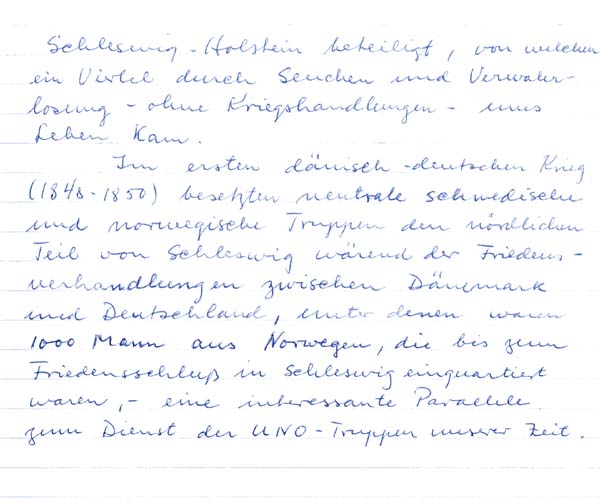 Schleswig-Holstein beteiligt, von welchen
ein Viertel durch Seuchen und Verwahr-
losung - ohne Kriegshandlungen - ums
Leben kam.
Im ersten dänisch-deutschen Krieg
(1848-1850) besetzten neutrale schwedische
und norwegische Truppen den nördlichen
Teil von Schleswig wärend der Friedens-
verhandlungen zwischen Dänemark
und Deutschland, unter denen waren
1000 Mann aus Norwegen, die bis zum
Friedensschluß in Schleswig einquartiert
waren, - eine interessante Paralelle
zum Dienst der UNO-Truppen unserer Zeit.